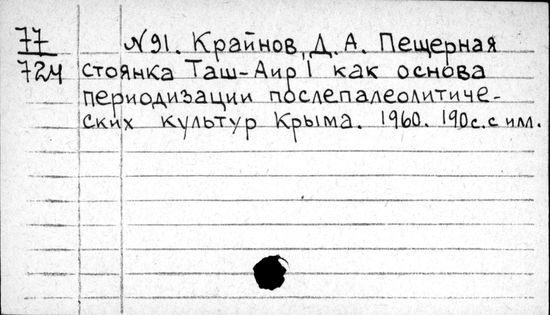 77 N91. Крайнов, Д. А. Пещерная
724 стоянка Таш-Аир I как основа
периодизации послепалеолитиче-
ских культур Крыма. 1960. 190с. с илл.